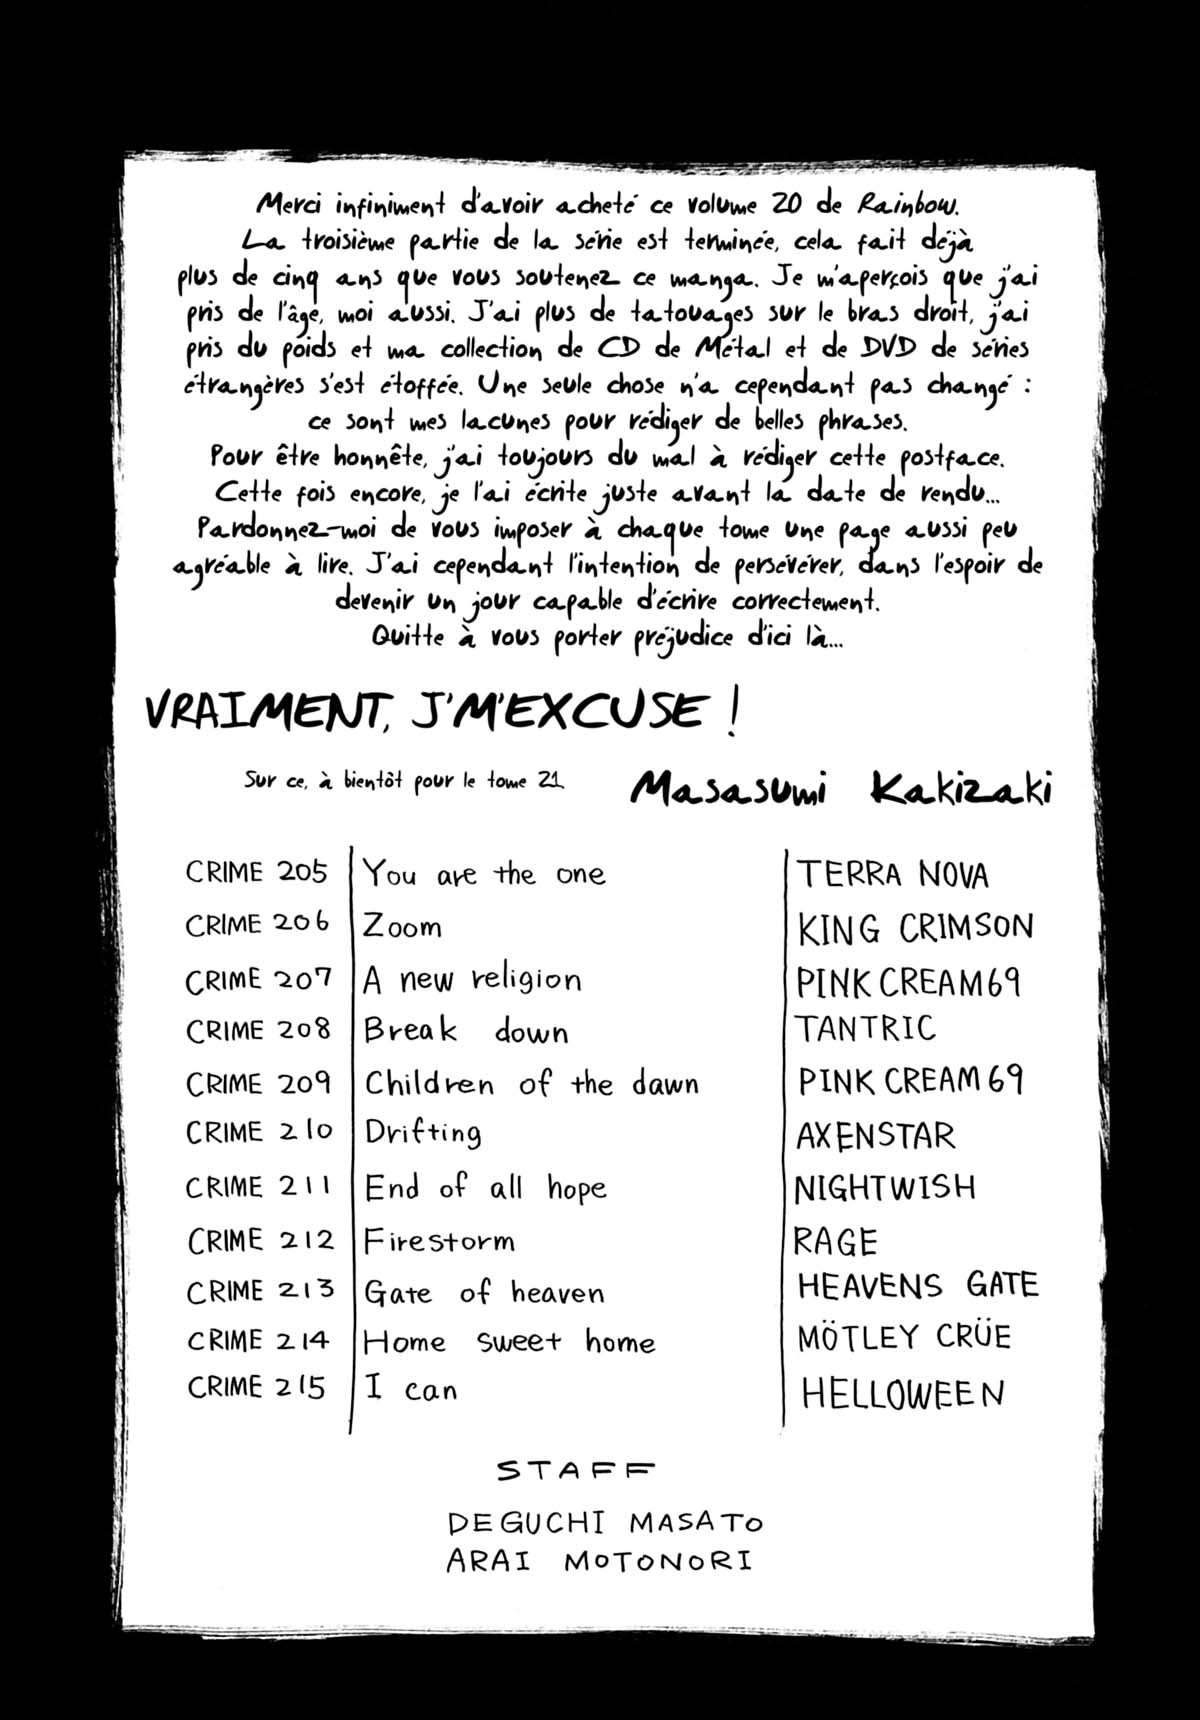 Merci infiniment d'avoir acheté ce volume 20 de Rainbow.
La troisième partie de la série est terminée, cela fait déjà
plus de cinq ans que vous soutenez ce manga. Je m'aperçois que j'ai
pris de l'âge, moi aussi. J'ai plus de tatouages sur le bras droit, j'ai
pris du poids et ma collection de CD de Métal et de DVD de séries
étrangères s'est étoffée. Une seule chose n'a cependant pas changé :
ce sont mes lacunes pour rédiger de belles phrases.
Pour être honnête, j'ai toujours du mal à rédiger cette postface.
Cette fois encore, je l'ai écrite juste avant la date de rendu...
Pardonnez-moi de vous imposer à chaque tome une page aussi peu
agréable à lire. J'ai cependant l'intention de persévérer, dans l'espoir de
devenir un jour capable d'écrire correctement.
Quitte à vous porter préjudice d'ici là...
VRAIMENT, J'M'EXCUSE !
Sur ce, à bientôt pour le tome 21 Masasumi Kakizaki
CRIME 205 You are the one TERRA NOVA
CRIME 206 Zoom KING CRIMSON
CRIME 207 A new religion PINK CREAM69
CRIME 208 Break down TANTRIC
CRIME 209 Children of the dawn PINK CREAM69
CRIME 210 Drifting AXENSTAR
CRIME 211 End of all hope NIGHTWISH
CRIME 212 Firestorm RAGE
CRIME 213 Gate of heaven HEAVENS GATE
CRIME 214 Home sweet home MÖTLEY CRÜE
CRIME 215 I can HELLOWEEN
STAFF
DEGUCHI MASATO
ARAI MOTONORI